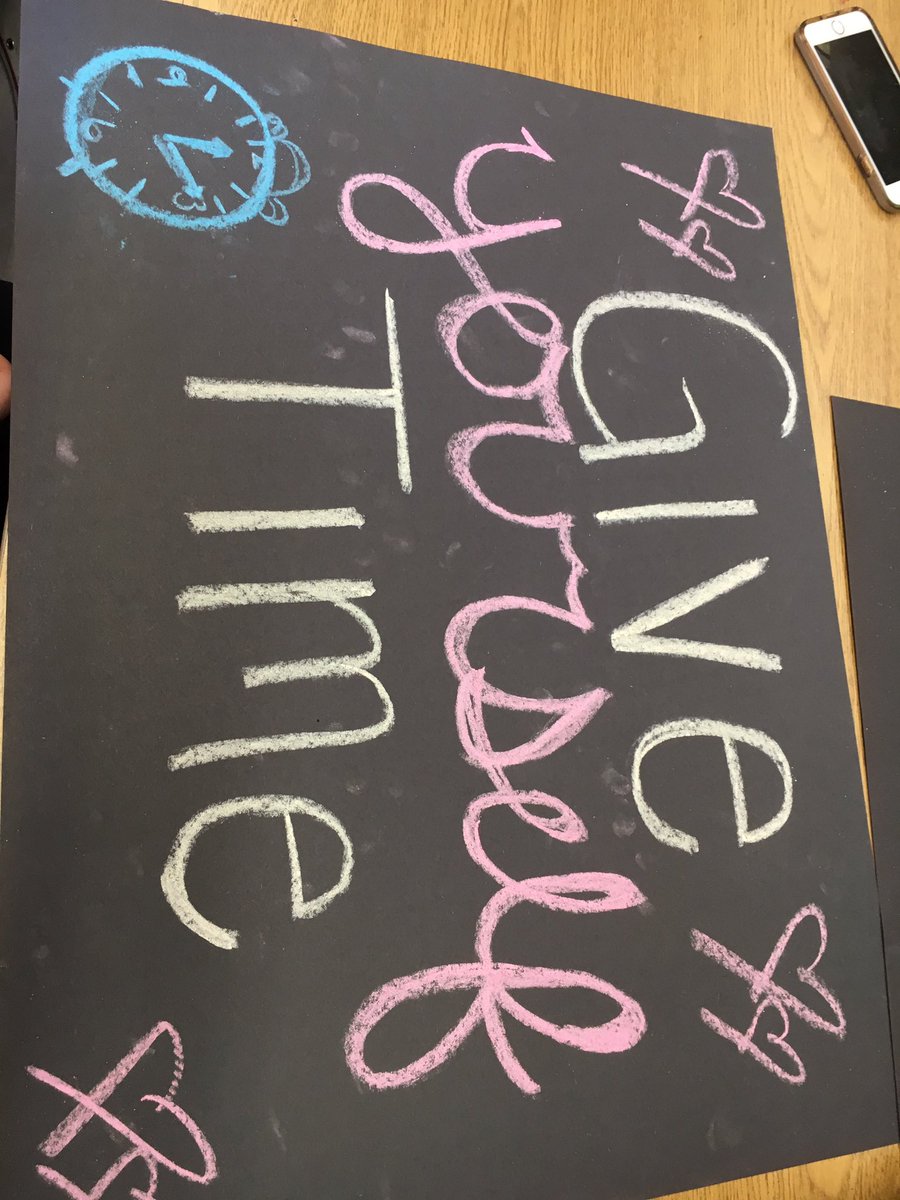 Give
yourself
Time